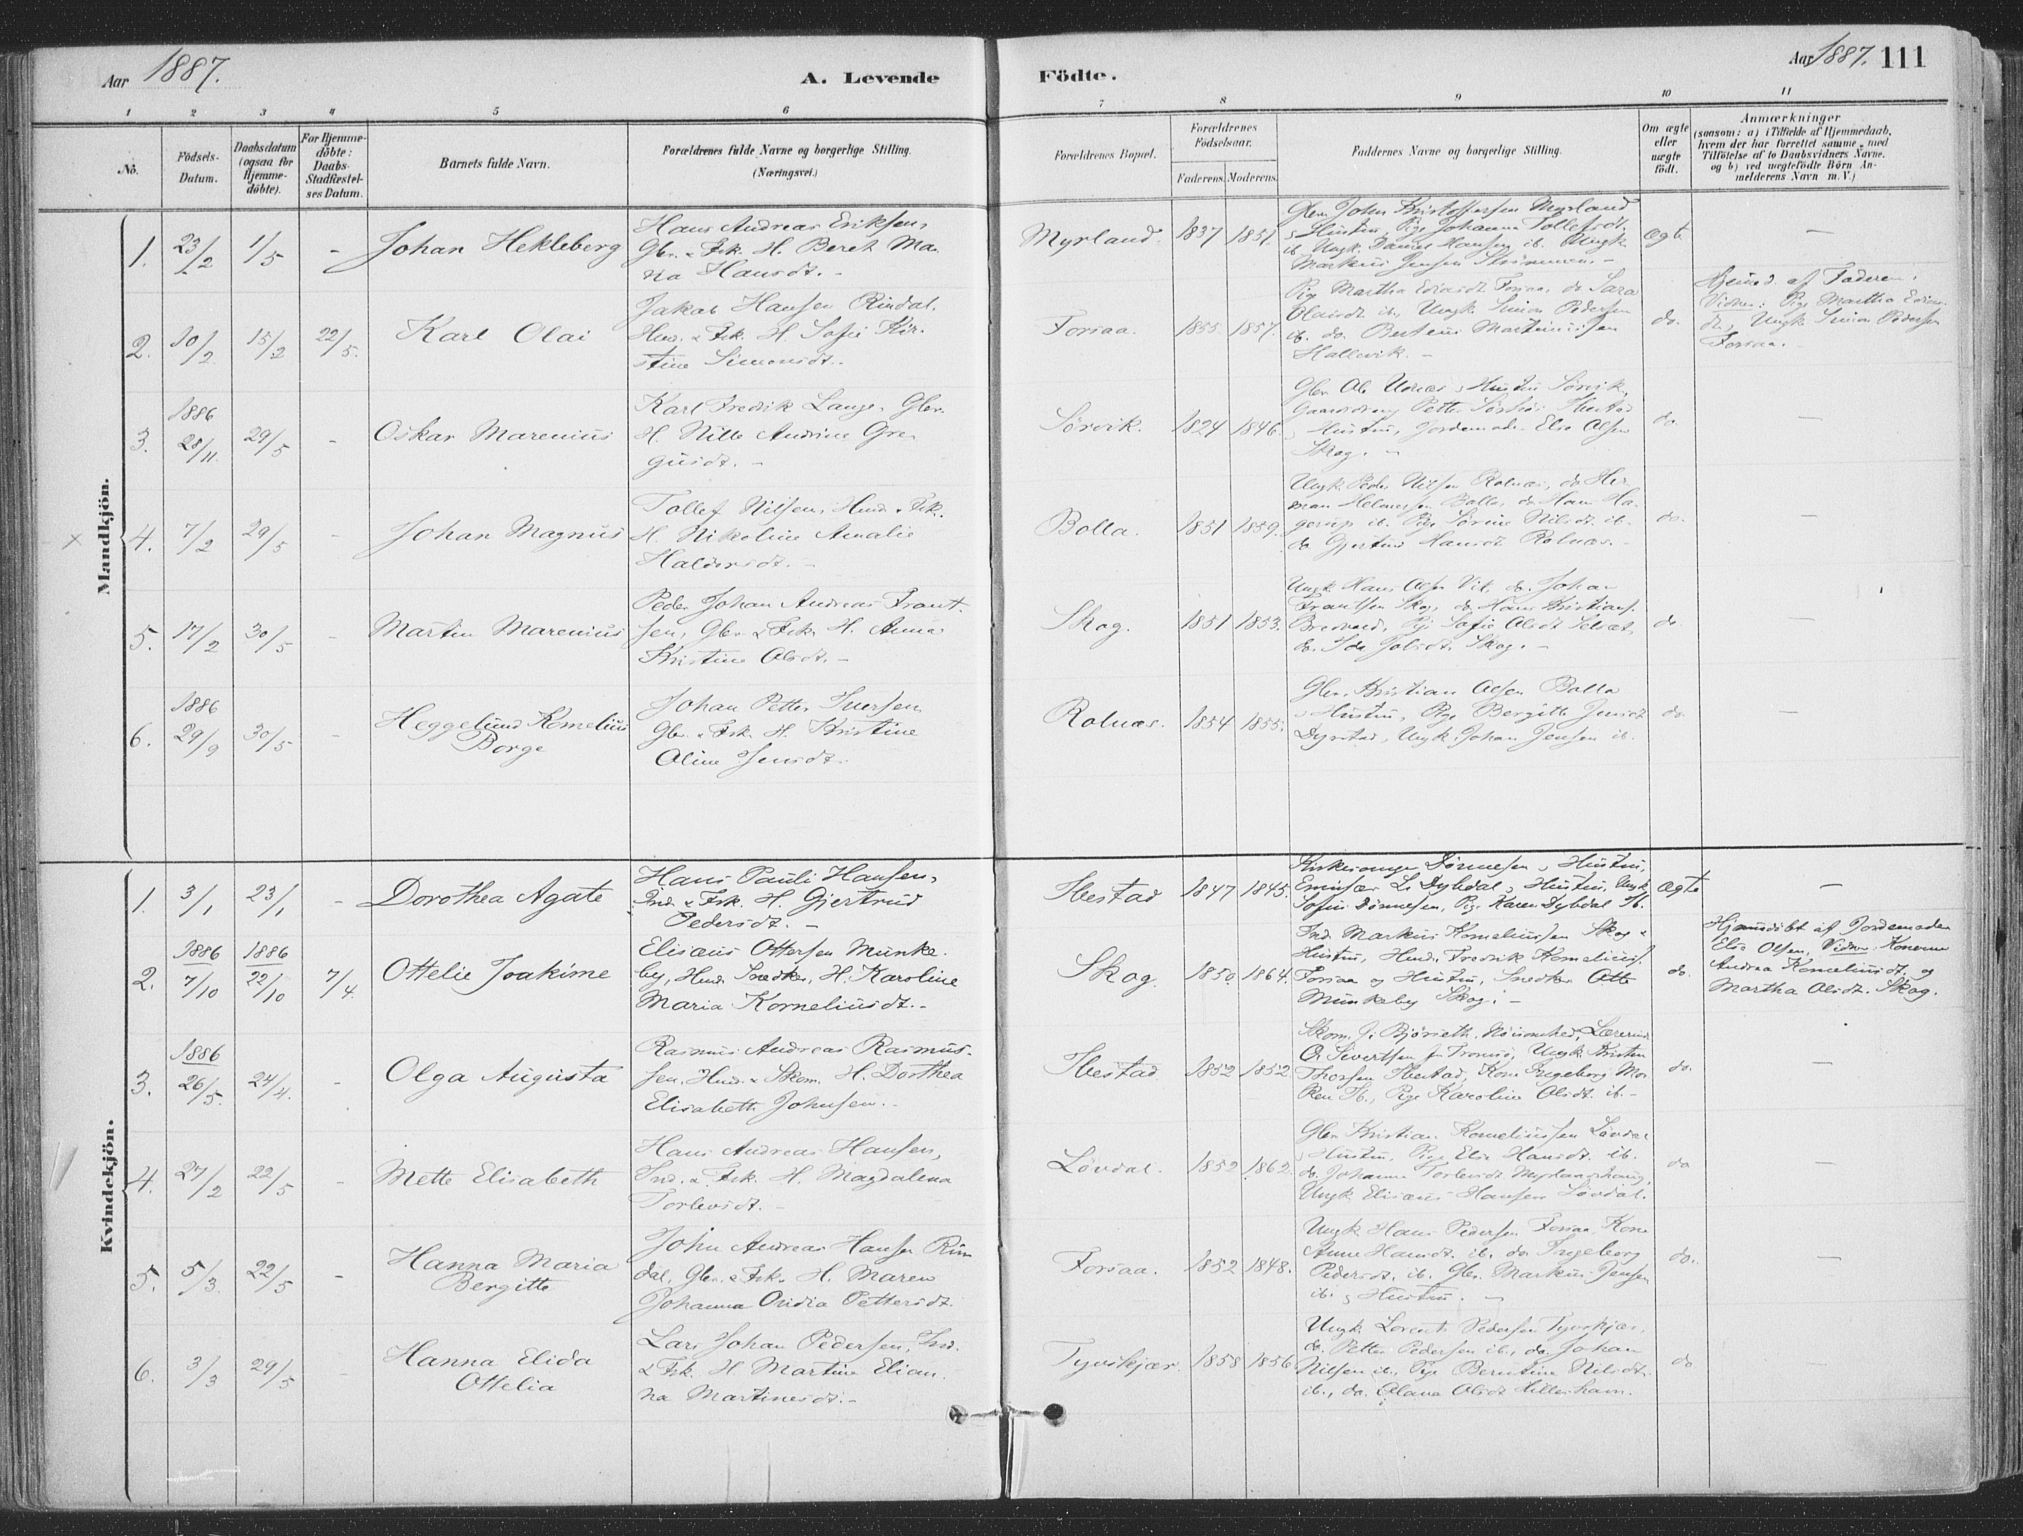 Aar 1887.
A. Levende Födte.
Aar 1887. 111
1 2 3 4 5 6 7 8 9 10 11
No.
Födsels-Datum.
Daabsdatum (ogsaa for Hjemme-döbte).
For Hjemme-döbte: Daabs-Stadfæstel-ses Datum.
Barnets fulde Navn.
Forældrenes fulde Navne og borgerlige Stilling. (Næringsvei.)
Forældrenes Bopæl.
Forældrenes Födselsaar.
Faderens. Moderens.
Faddernes Navne og borgerlige Stilling.
Om ægte eller uægte födt.
Anmærkninger
(saasom: a) i Tilfælde af Hjemmedaab,
hvem der har forrettet samme, med
Tilföielse af to Daabsvidners Navne,
og b) ved uægtefödte Börn An-
melderens Navn m. V.)
Mandkjön.
1. 23/2 1/5 - Johan Hekleberg
Hans Andreas Eriksen,
Gbr. & Fsk. H. Beret Ma-
na Hansdt. -
Myrland. 1837 1851.
Gbr. John Kristoffersen Myrland
& Hustru, Pige Johanna Tollefsdt,
ib. Ungk. Hansen ib. Ungk.
Markus Jensen -
ægte -
2. 10/2 15/2 22/5. Karl Olai
Jakob Hansen Rindal,
Hus. & Fsk. H. Sofie Kir-
stine Simonsdt.
Forsaa. 1855. 1857.
Pige Martha Edisdt Forsaa, do Sara
Olaisdt ib, Ungk. Simon Pedersen
ib. do. Berteus Martinussen
Hallevik. -
do.
Hjemd. af Faderen.
Vidner: Pige Martha
dt, Ungk Simon Pedersen
Forsaa. -
3. 1886 28/11. 29/5 - Oskar Marenius
Karl Fredrik Lange, Gbr.
H. Nille Andrine Gre-
gusdt. -
Sørvik. 1824 1846.
Gbr. Ole & Hustru Sørvik,
Petter Ibestad
& Hustru, Jordemoder Elise Olsen
Skog. -
do. -
4. 7/2 29/5 - Johan Magnus
Tollef Nilsen, Husd. & Fsk.
H. Nikoline Amalie
Haldorsdt. -
Bolla. 1851 1859.
Ungk. Peder Nilsen Rolnæs, do Her-
man Bolla, do Hans Ha-
gerup ib. Pige Sørine Nilsdt ib.
do Gjertine Hansdt Rolnæs. -
do. -
5. 17/2 30/5 - Martin Marenius
Peder Johan Andreas Frant-
sen, Gbr. & Fsk. H. Anna
Kristine Olsdt. -
Skog. 1851 1853.
Ungk Hans Olsen Vik, do. Johan
Frantsen Skog, do. Hans Kristians.
Bredvand, Pig Sofie Olsdt
do. Ida Jakobsdt. Skog. -
do. -
6. 1886 29/9 30/5 - Heggelund Kornelius
Borge
Johan Petter Iversen
Gbr. & Fsk. H. Kristine
Oline Jensdt.
Rolnæs. 1854 1855.
Gbr. Kristian Olsen Bolla
& Hustru, Pige Bergitte Jensdt
Dyrstad, Ungk. Johan Jensen ib.
do. -
Kvindekjön.
1. 3/1 23/1 - Dorothea Agate
Hans Pauli Hansen,
Ind. & Fsk. H. Gjertrud
Pedersdt. -
Ibestad 1847 1845.
Kirkesanger Dønnesen & Hustru,
L. Dybdal & Hustru, Ungk
Sofus Dønnesen, Pige Karen Dybdal Ib.
ægte -
2. 1886 7/10 1886 22/10 7/4. Ottelie Joakime
Elisæus Ottersen Munke-
by, Husd. Snedker, H. Karoline
Maria Korneliusdt. -
Skog. 1850. 1864.
Ind. Markus Korneliussen Skog &
Hustru, Husd. Fredrik Korneliuss.
Forsaa og Hustru, Snedker Otter
Munkeby Skog. -
do.
Hjemmedöbt af Jordemoder
Elise Olsen, Vidner Konerne
Andrea Korneliusdt. og
Martha Olsdt. Skog.
3. 1886 26/5. 24/4. - Olga Augusta
Rasmus Andreas Rasmus-
sen, Husd. & Skom. H. Dorthea
Elisabeth Johnsen. -
Ibestad 1852 1852
Skom. J. Bjørseth, Lærerinde
O. Sivertsen fr Tromsø, Ungk. Kristen
Thorsen Ibestad, Kone Ingeborg Mor-
ken Ib., Pige Karoline Olsdt. ib. -
do. -
4. 27/2 22/5 - Mette Elisabeth
Hans Andreas Hansen,
Ind. & Fsk. H. Magdalena
Torlevsdt. -
Løvdal. 1852 1862.
Gbr Kristian Korneliussen Løvdal
& Hustru, Pige Else Hansdt. ib.
do. Johanna Torlevsdt Myrlandshaug,
Ungk Elisæus Hansen Løvdal.
do -
5. 5/3. 22/5 - Hanna Maria
Bergitte
John Andreas Hansen Rin-
dal, Gbr. & Fsk. H. Maren
Johanna Ovidia Pettersdt.
Forsaa. 1852 1848.
Ungk Hans Pedersen Forsaa Kone
Anne Hansdt. ib. do Ingeborg
Pedersdt. ib. Gbr. Markus Jensen
ib. & Hustru. -
do. -
6. 3/3 29/5 - Hanna Elida
Ottelia
Lars Johan Pedersen, Ind.
& Fsk. H Martine Elian-
na Martinesdt. -
Tyvskjær 1858 1856
Ungk Lorents Pedersen Tyvskjær
do. Petter Pedersen ib., do. Johan
Nilsen ib. Pige Berntine Nilsdt.
ib., do. Olava Olsdt
do